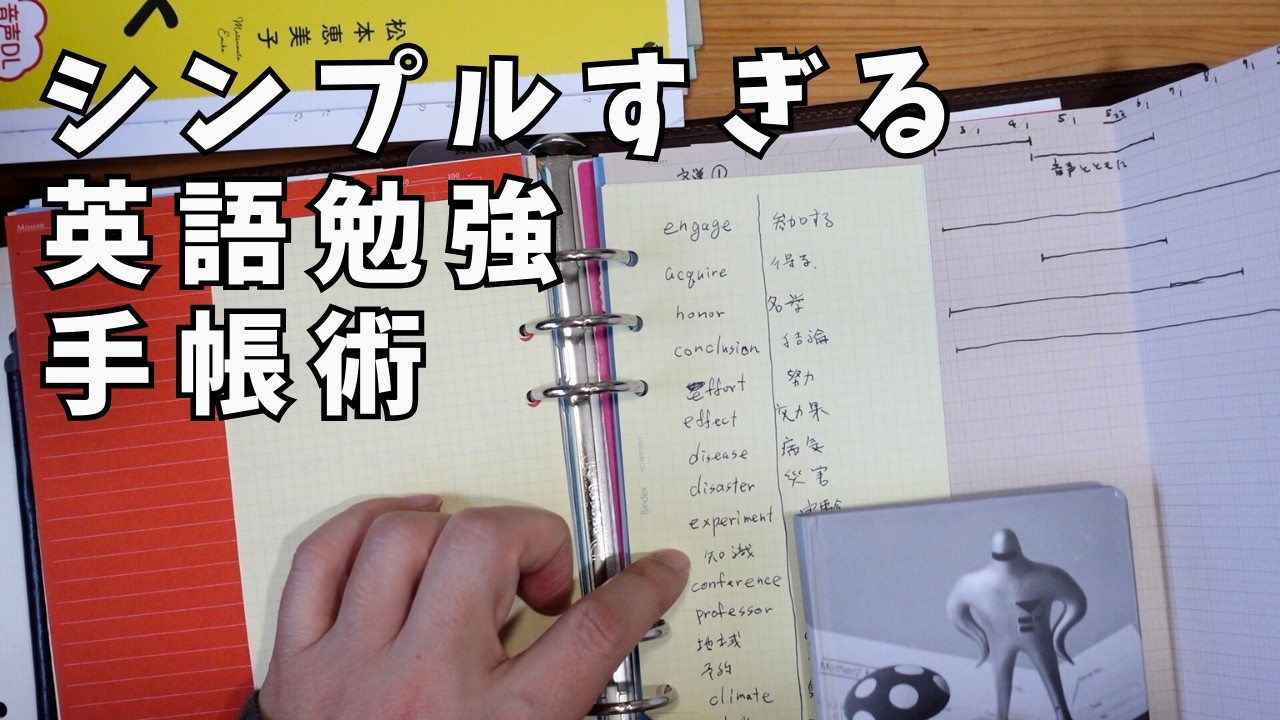 シンプルすぎる
英語勉強
手帳術
音声DL
松本恵美子
Matsumoto Emiko
Mission
100
文単①
engage 参加する
acquire 得る
honor 名誉
conclusion 結論
effort 努力
effect 効果
disease 病気
disaster 災害
experiment 実験
知識
conference
professor
地域
予約
climate
Bindex
3/1 4/1 5/1 5/22 6/1 7/1 8/1 9/1
音声とともに
Mother2